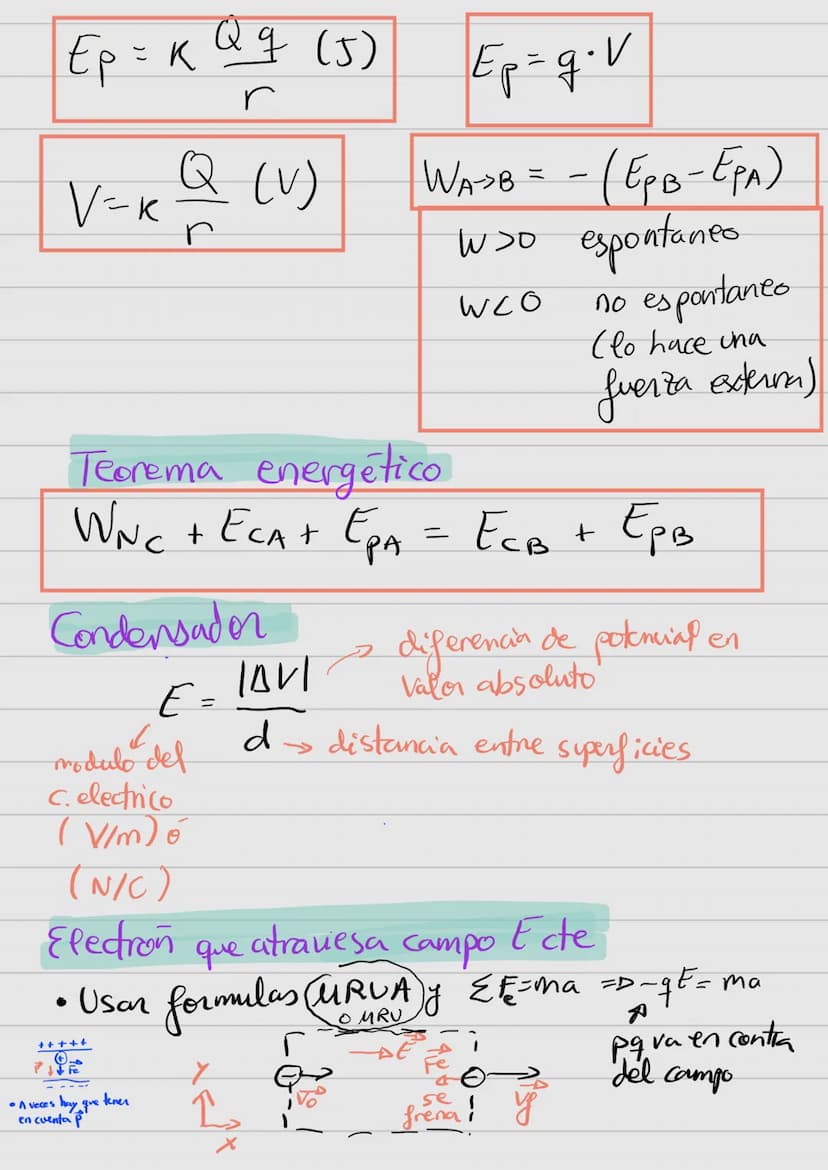 Ep = K Qq/r (J)
Ep = q·V
V = K Q/r (V)
WA->B = - (EPB - EPA)
W>0 espontaneo
W<0 no espontaneo
(lo hace una
fuerza externa)
Teorema energético
WNC + ECA + EPA = ECB + EPB
Condensador
E = |ΔV|/d
→ diferencia de potencial en
valor absoluto
→ distancia entre superficies
modulo del
c. electrico
(V/m) ó
(N/C)
Electron que atraviesa campo E cte
• Usar formulas MRUA y ΣFe=ma => -qE = ma
O MRU
pq va en contra
del campo
+++++
+
P Fe
- - - -
• A veces hay que tener
en cuenta P
Y
X
E
Fe
- Vo
-
se
frena
Vf